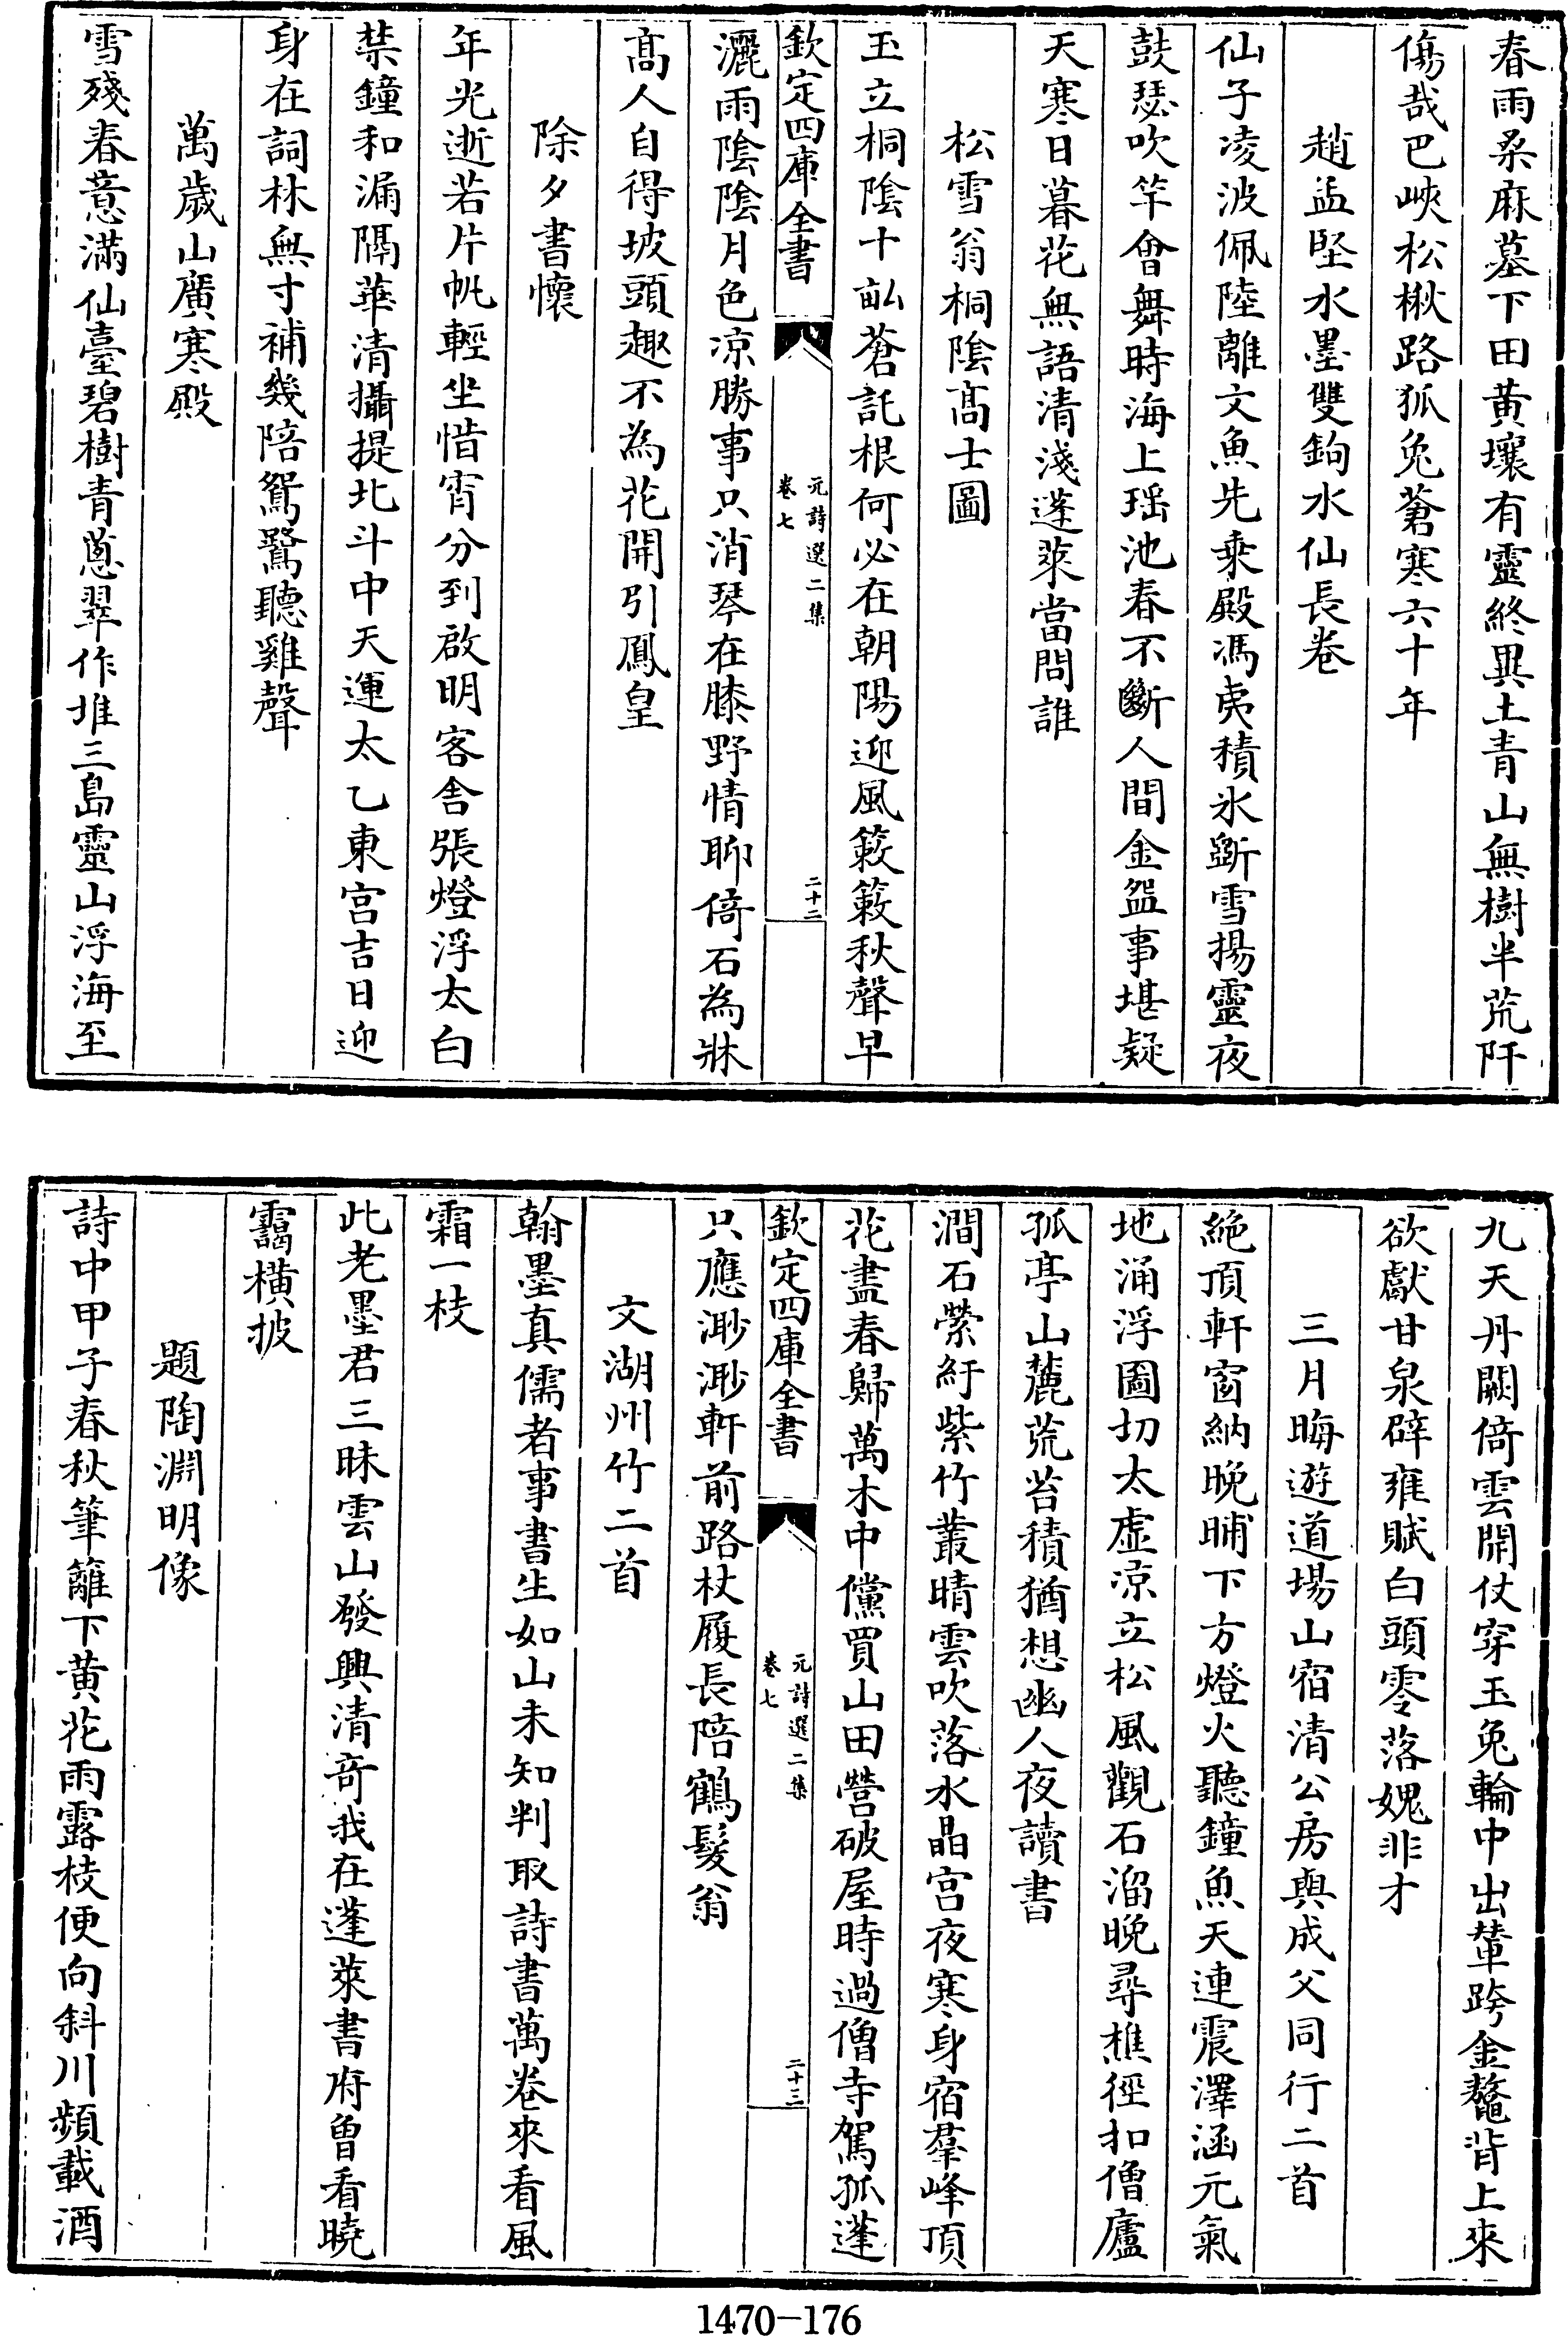 春雨桑麻墓下田黄壤有靈終異土青山無樹半荒阡
傷哉巴峽松楸路狐兔蒼寒六十年
趙孟堅水墨雙鉤水仙長卷
仙子凌波佩陸離文魚先乘殿馮夷積氷斲雪揚靈夜
鼓瑟吹竽會舞時海上瑶池春不斷人間金盌事堪疑
天寒日暮花無語清淺蓬萊當問誰
松雪翁桐陰髙士圖
玉立桐陰十畝蒼託根何必在朝陽迎風簌簌秋聲早
欽定四庫全書
元詩選二集
卷七
二十二
灑雨陰陰月色凉勝事只消琴在膝野情聊倚石為牀
髙人自得坡頭趣不為花開引鳳皇
除夕書懷
年光逝若片帆輕坐惜宵分到啟明客舍張燈浮太白
禁鐘和漏隔華清攝提北斗中天運太乙東宫吉日迎
身在詞林無寸補幾陪鴛鷺聽雞聲
萬歲山廣寒殿
雪殘春意滿仙臺碧樹青蔥翠作堆三島靈山浮海至
九天丹闕倚雲開仗穿玉兔輪中出輦跨金鼇背上來
欲獻甘泉辟雍賦白頭零落媿非才
三月晦遊道場山宿清公房與成父同行二首
絶頂軒窗納晚晡下方燈火聽鐘魚天連震澤涵元氣
地涌浮圖切太虚凉立松風觀石溜晚尋樵徑扣僧廬
孤亭山麓荒苔積猶想幽人夜讀書
澗石縈紆紫竹叢晴雲吹落水晶宫夜寒身宿羣峰頂
花盡春歸萬木中儻買山田營破屋時過僧寺駕孤蓬
欽定四庫全書
元詩選二集
卷七
二十三
只應渺渺軒前路杖履長陪鶴髮翁
文湖州竹二首
翰墨真儒者事書生如山未知判取詩書萬卷來看風
霜一枝
此老墨君三昧雲山發興清竒我在蓬萊書府曾看曉
靄横披
題陶淵明像
詩中甲子春秋筆籬下黄花雨露枝便向斜川頻載酒
1470-176